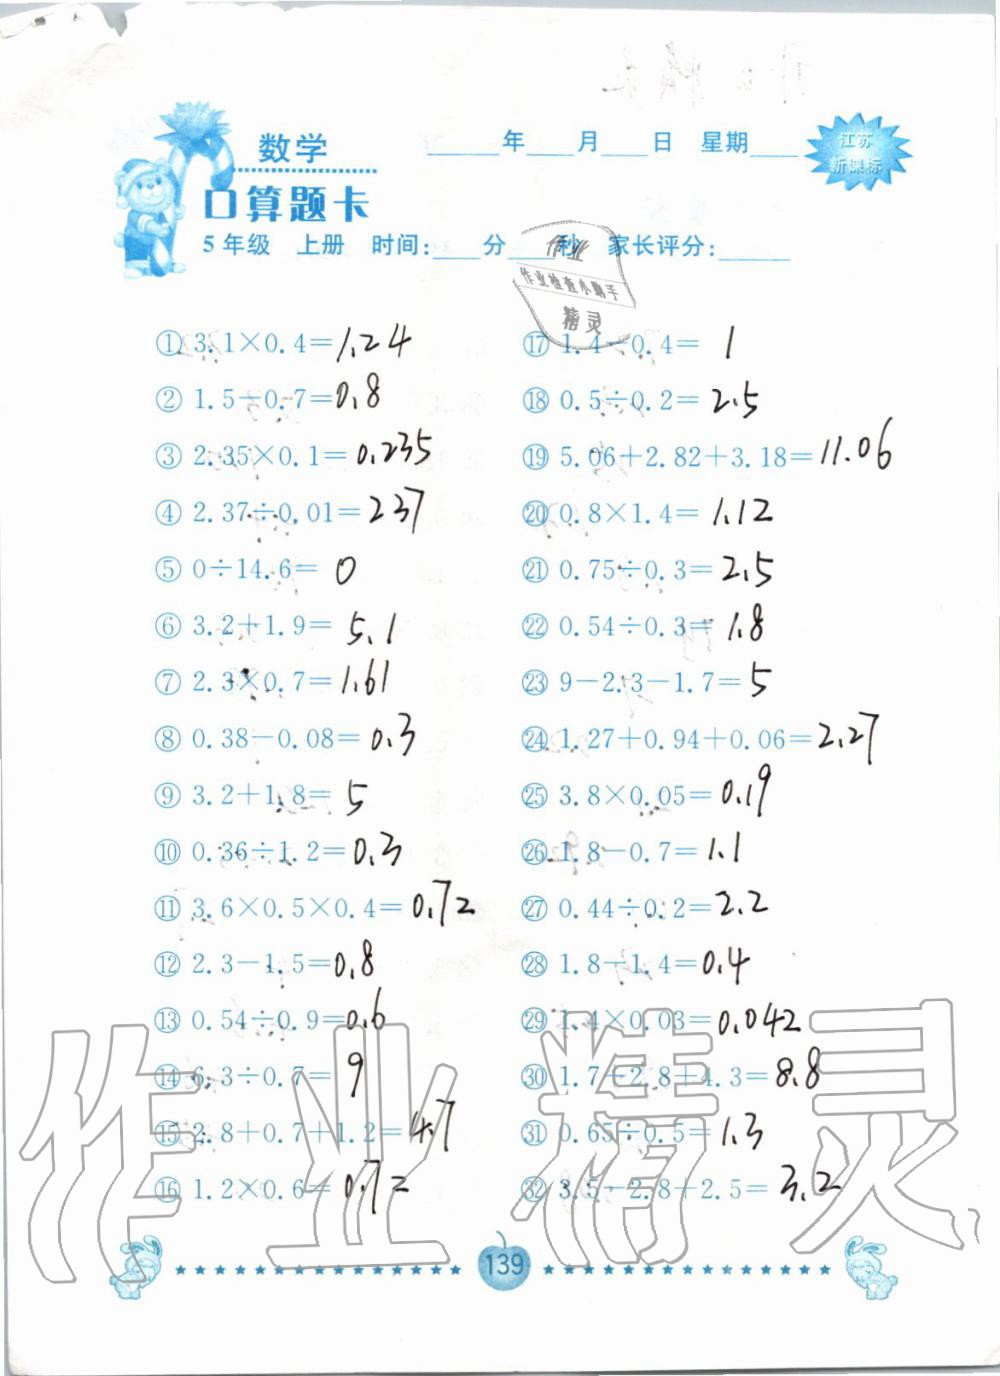 数学
____年____月____日 星期____
江苏
新课标
口算题卡
5年级 上册 时间:____分____秒 家长评分:____
作业
作业检查小助手
精灵
① 3.1×0.4=1.24
② 1.5-0.7=0.8
③ 2.35×0.1=0.235
④ 2.37÷0.01=237
⑤ 0÷14.6=0
⑥ 3.2+1.9=5.1
⑦ 2.3×0.7=1.61
⑧ 0.38-0.08=0.3
⑨ 3.2+1.8=5
⑩ 0.36÷1.2=0.3
⑪ 3.6×0.5×0.4=0.72
⑫ 2.3-1.5=0.8
⑬ 0.54÷0.9=0.6
⑭ 6.3÷0.7=9
⑮ 2.8+0.7+1.2=4.7
⑯ 1.2×0.6=0.72
⑰ 1.4-0.4=1
⑱ 0.5÷0.2=2.5
⑲ 5.06+2.82+3.18=11.06
⑳ 0.8×1.4=1.12
㉑ 0.75÷0.3=2.5
㉒ 0.54÷0.3=1.8
㉓ 9-2.3-1.7=5
㉔ 1.27+0.94+0.06=2.27
㉕ 3.8×0.05=0.19
㉖ 1.8-0.7=1.1
㉗ 0.44÷0.2=2.2
㉘ 1.8-1.4=0.4
㉙ 1.4×0.03=0.042
㉚ 1.7+2.8+4.3=8.8
㉛ 0.65÷0.5=1.3
㉜ 3.5-2.8+2.5=3.2
作业精灵
139